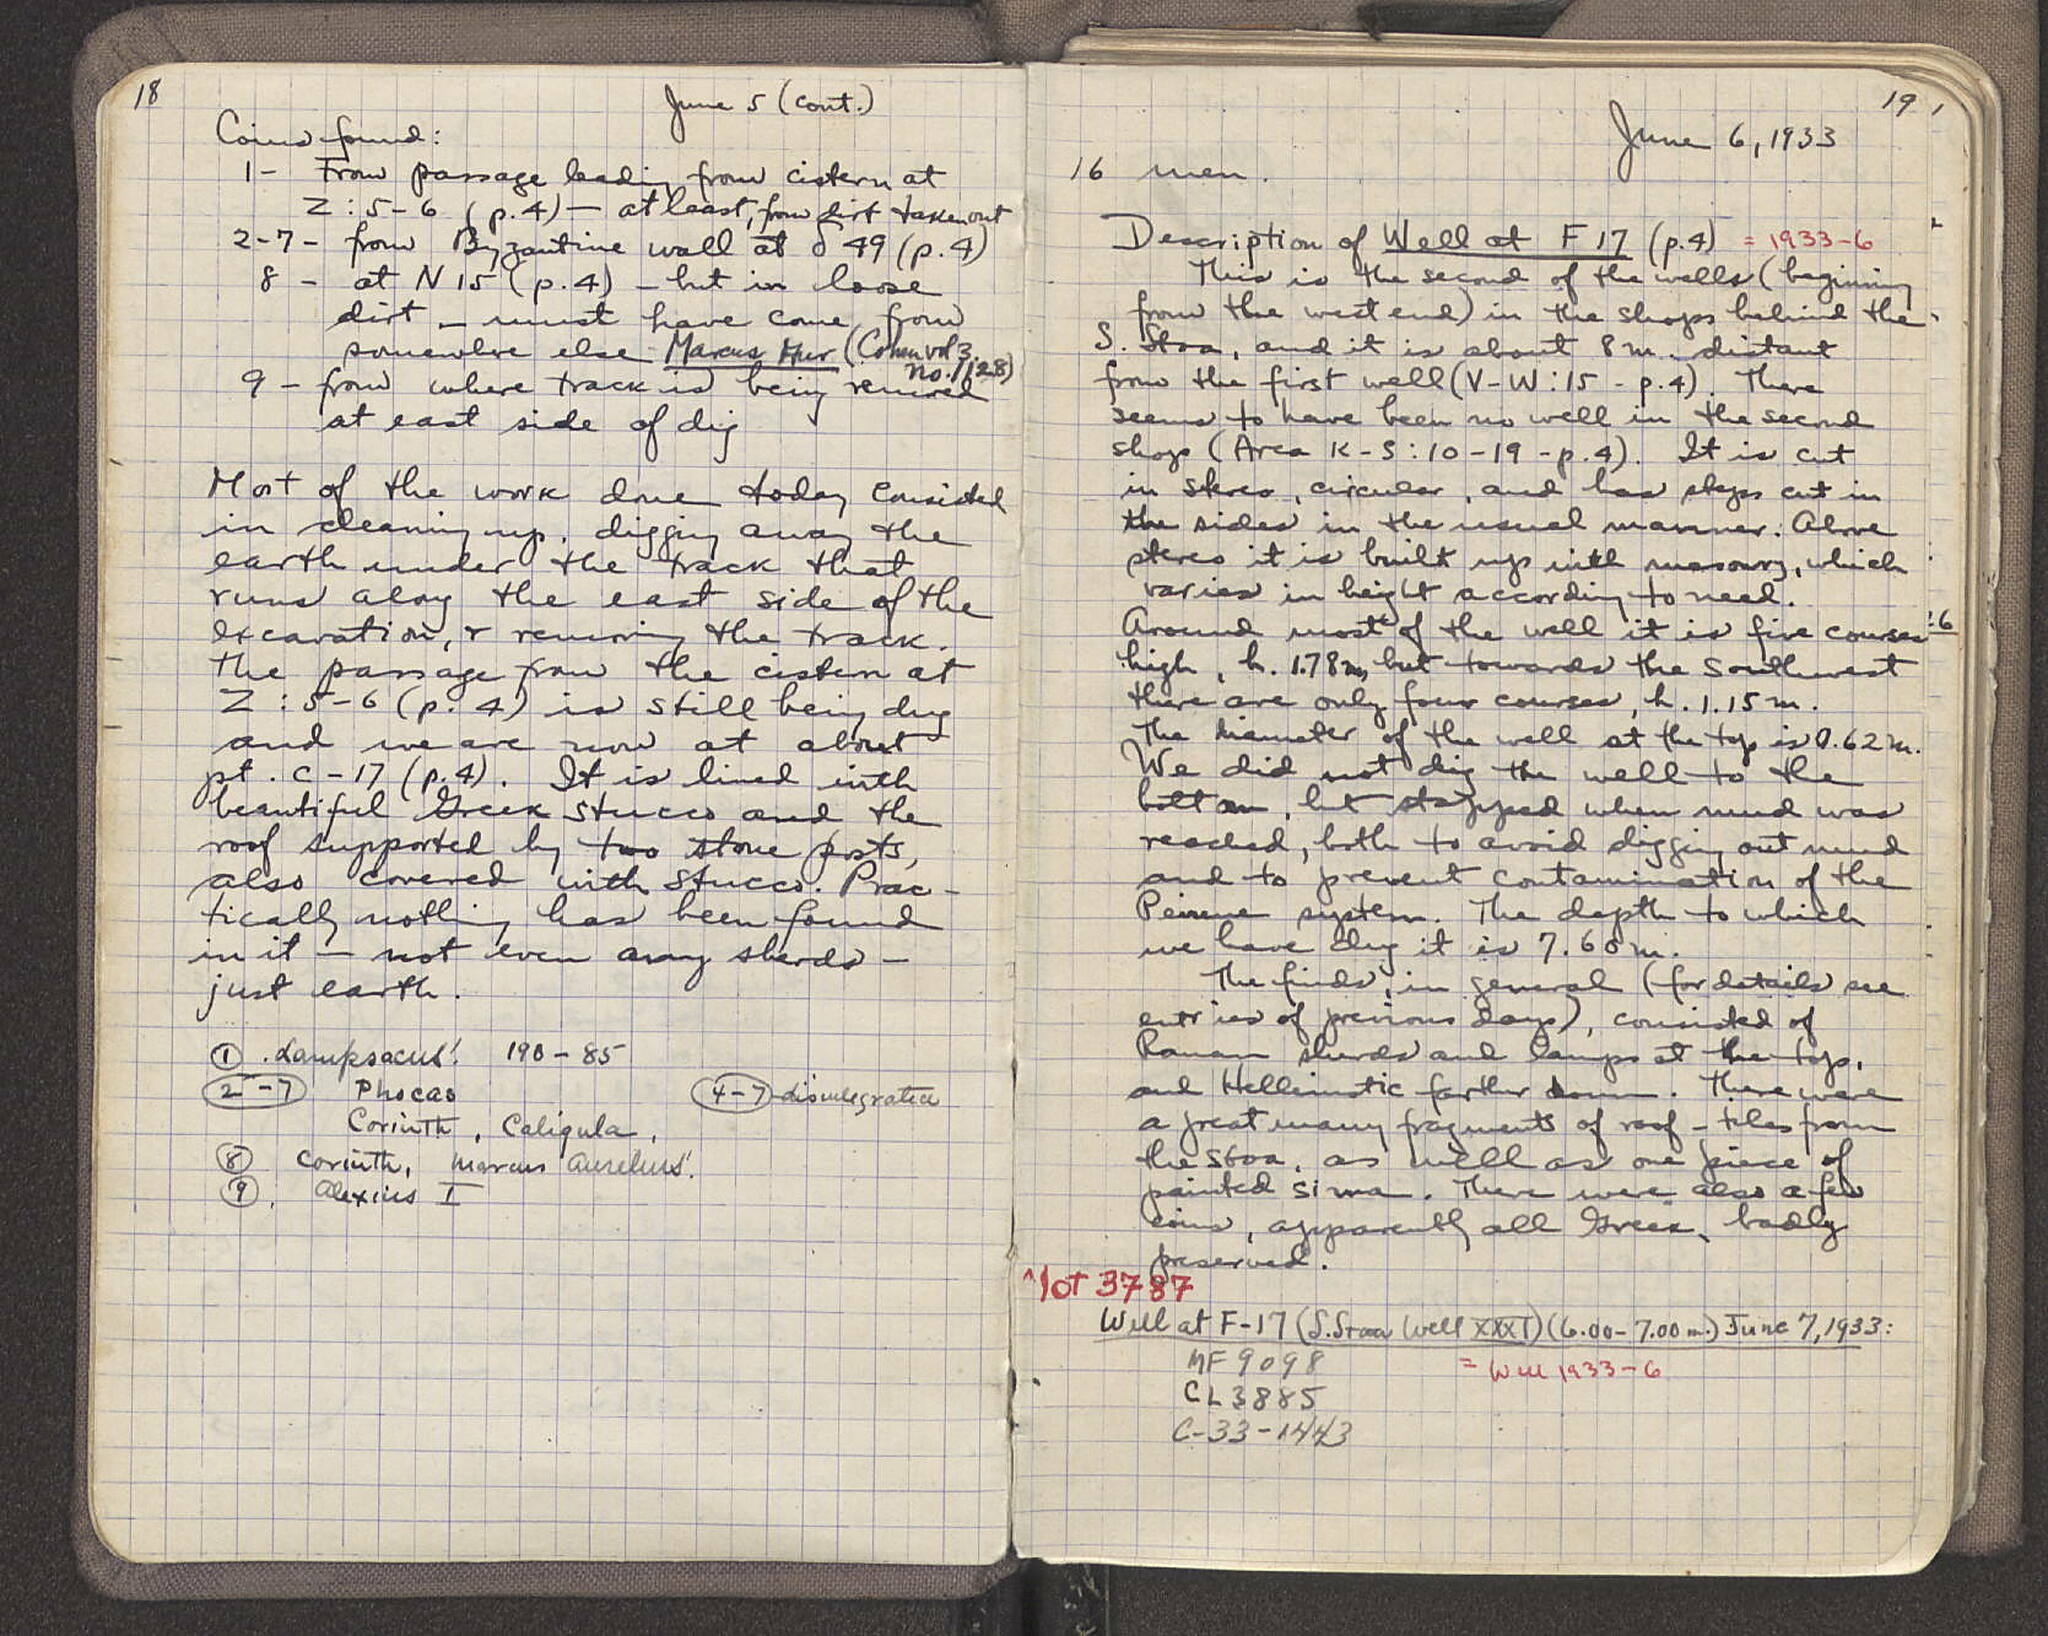 18
June 5 (cont.)
Coins found:
1- From passage leading from cistern at
Z : 5-6 (p. 4) — at least, from dirt taken out
2-7 - from Byzantine wall at δ 49 (p. 4)
8 - at N 15 (p. 4) - but in loose
dirt - must have come from
somewhere else Marcus Aur (Cohen vol 3,
no. 1128)
9 - from where track is being removed
at east side of dig
Most of the work done today consisted
in cleaning up, digging away the
earth under the track that
runs along the east side of the
excavation, & removing the track.
The passage from the cistern at
Z : 5-6 (p. 4) is still being dug
and we are now at about
pt. C-17 (p. 4). It is lined with
beautiful Greek stucco and the
roof supported by two stone posts,
also covered with stucco. Prac-
tically nothing has been found
in it — not even any sherds —
just earth.
① Lampsacus! 190-85
2-7 Phocas 4-7 disintegrated
Corinth, Caligula,
⑧ Corinth, Marcus Aurelius!
⑨. Alexius I
19
June 6, 1933
16 men.
Description of Well at F 17 (p. 4) = 1933-6
This is the second of the wells (beginning
from the west end) in the shops behind the
S. Stoa, and it is about 8 m. distant
from the first well (V-W : 15 - p. 4). There
seems to have been no well in the second
shop (Area K-S : 10-19 - p. 4). It is cut
in stereo, circular, and has steps cut in
the sides in the usual manner. Above
stereo it is built up with masonry, which
varies in height according to need.
Around most of the well it is five courses
high, h. 1.78 m, but towards the southwest
there are only four courses, h. 1.15 m.
The diameter of the well at the top is 0.62 m.
We did not dig the well to the
bottom, but stopped when mud was
reached, both to avoid digging out mud
and to prevent contamination of the
Peirene system. The depth to which
we have dug it is 7.60 m.
The finds, in general (for details see
entries of previous days), consisted of
Roman sherds and lamps at the top,
and Hellenistic farther down. There were
a great many fragments of roof-tiles from
the stoa, as well as one piece of
painted sima. There were also a few
coins, apparently all Greek, badly
preserved.
^ lot 3787
Well at F-17 (S. Stoa Well XXXI) (6.00-7.00 m.) June 7, 1933:
MF 9098 = Well 1933-6
CL 3885
C-33-1443